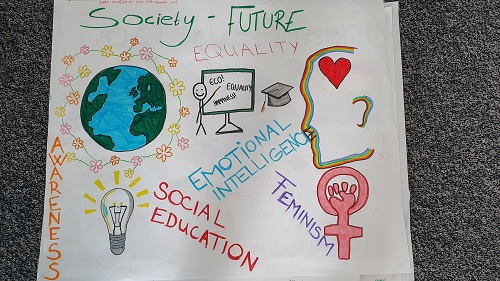 SOCIETY - FUTURE
EQUALITY
ECO!
EQUALITY
HAPPINESS!
EMOTIONAL
INTELLIGENCE
AWARENESS
SOCIAL
EDUCATION
FEMINISM